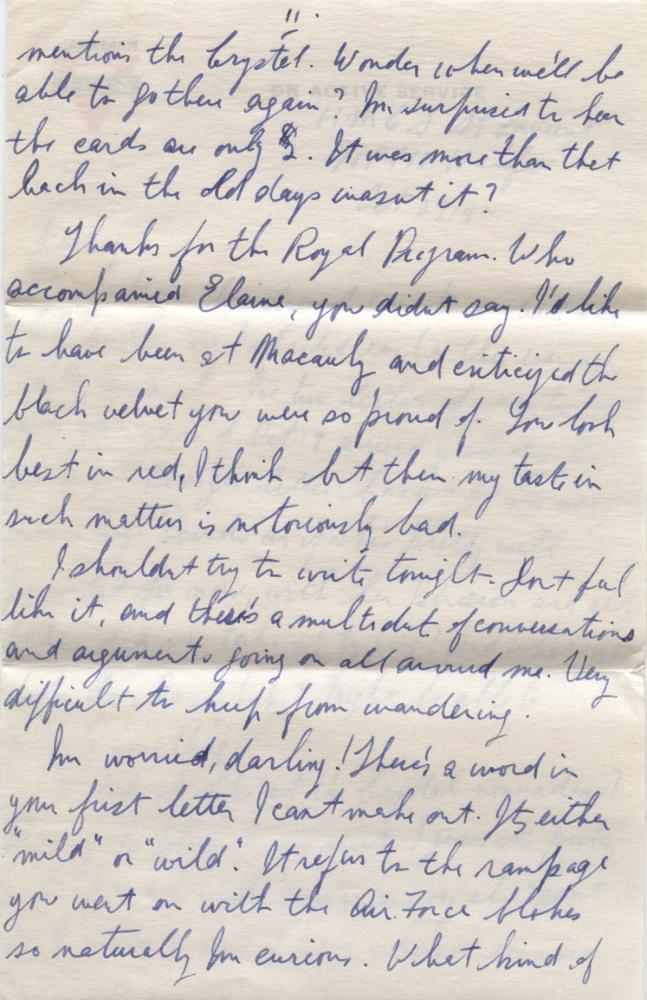 11.
mentions the Crystal. Wonder when we'll be
able to go there again? Im surprised to hear
the cards are only $2. It was more than that
back in the old days wasnt it?
Thanks for the Royal Program. Who
accompanied Elaine, you didnt say. I'd like
to have been at Macauly and criticized the
black velvet you were so proud of. You look
best in red, I think but then my taste in
such matters is notoriously bad.
I shouldnt try to write tonight. Dont feel
like it, and there's a multidut of conversations
and arguments going on all around me. Very
difficult to keep from wandering.
Im worried, darling! There's a word in
your first letter I cant make out. Its either
"mild" or "wild". It refers to the rampage
you went on with the Air Force blokes
so naturally Im curious. What kind of
ON ACTIVE SERVICE